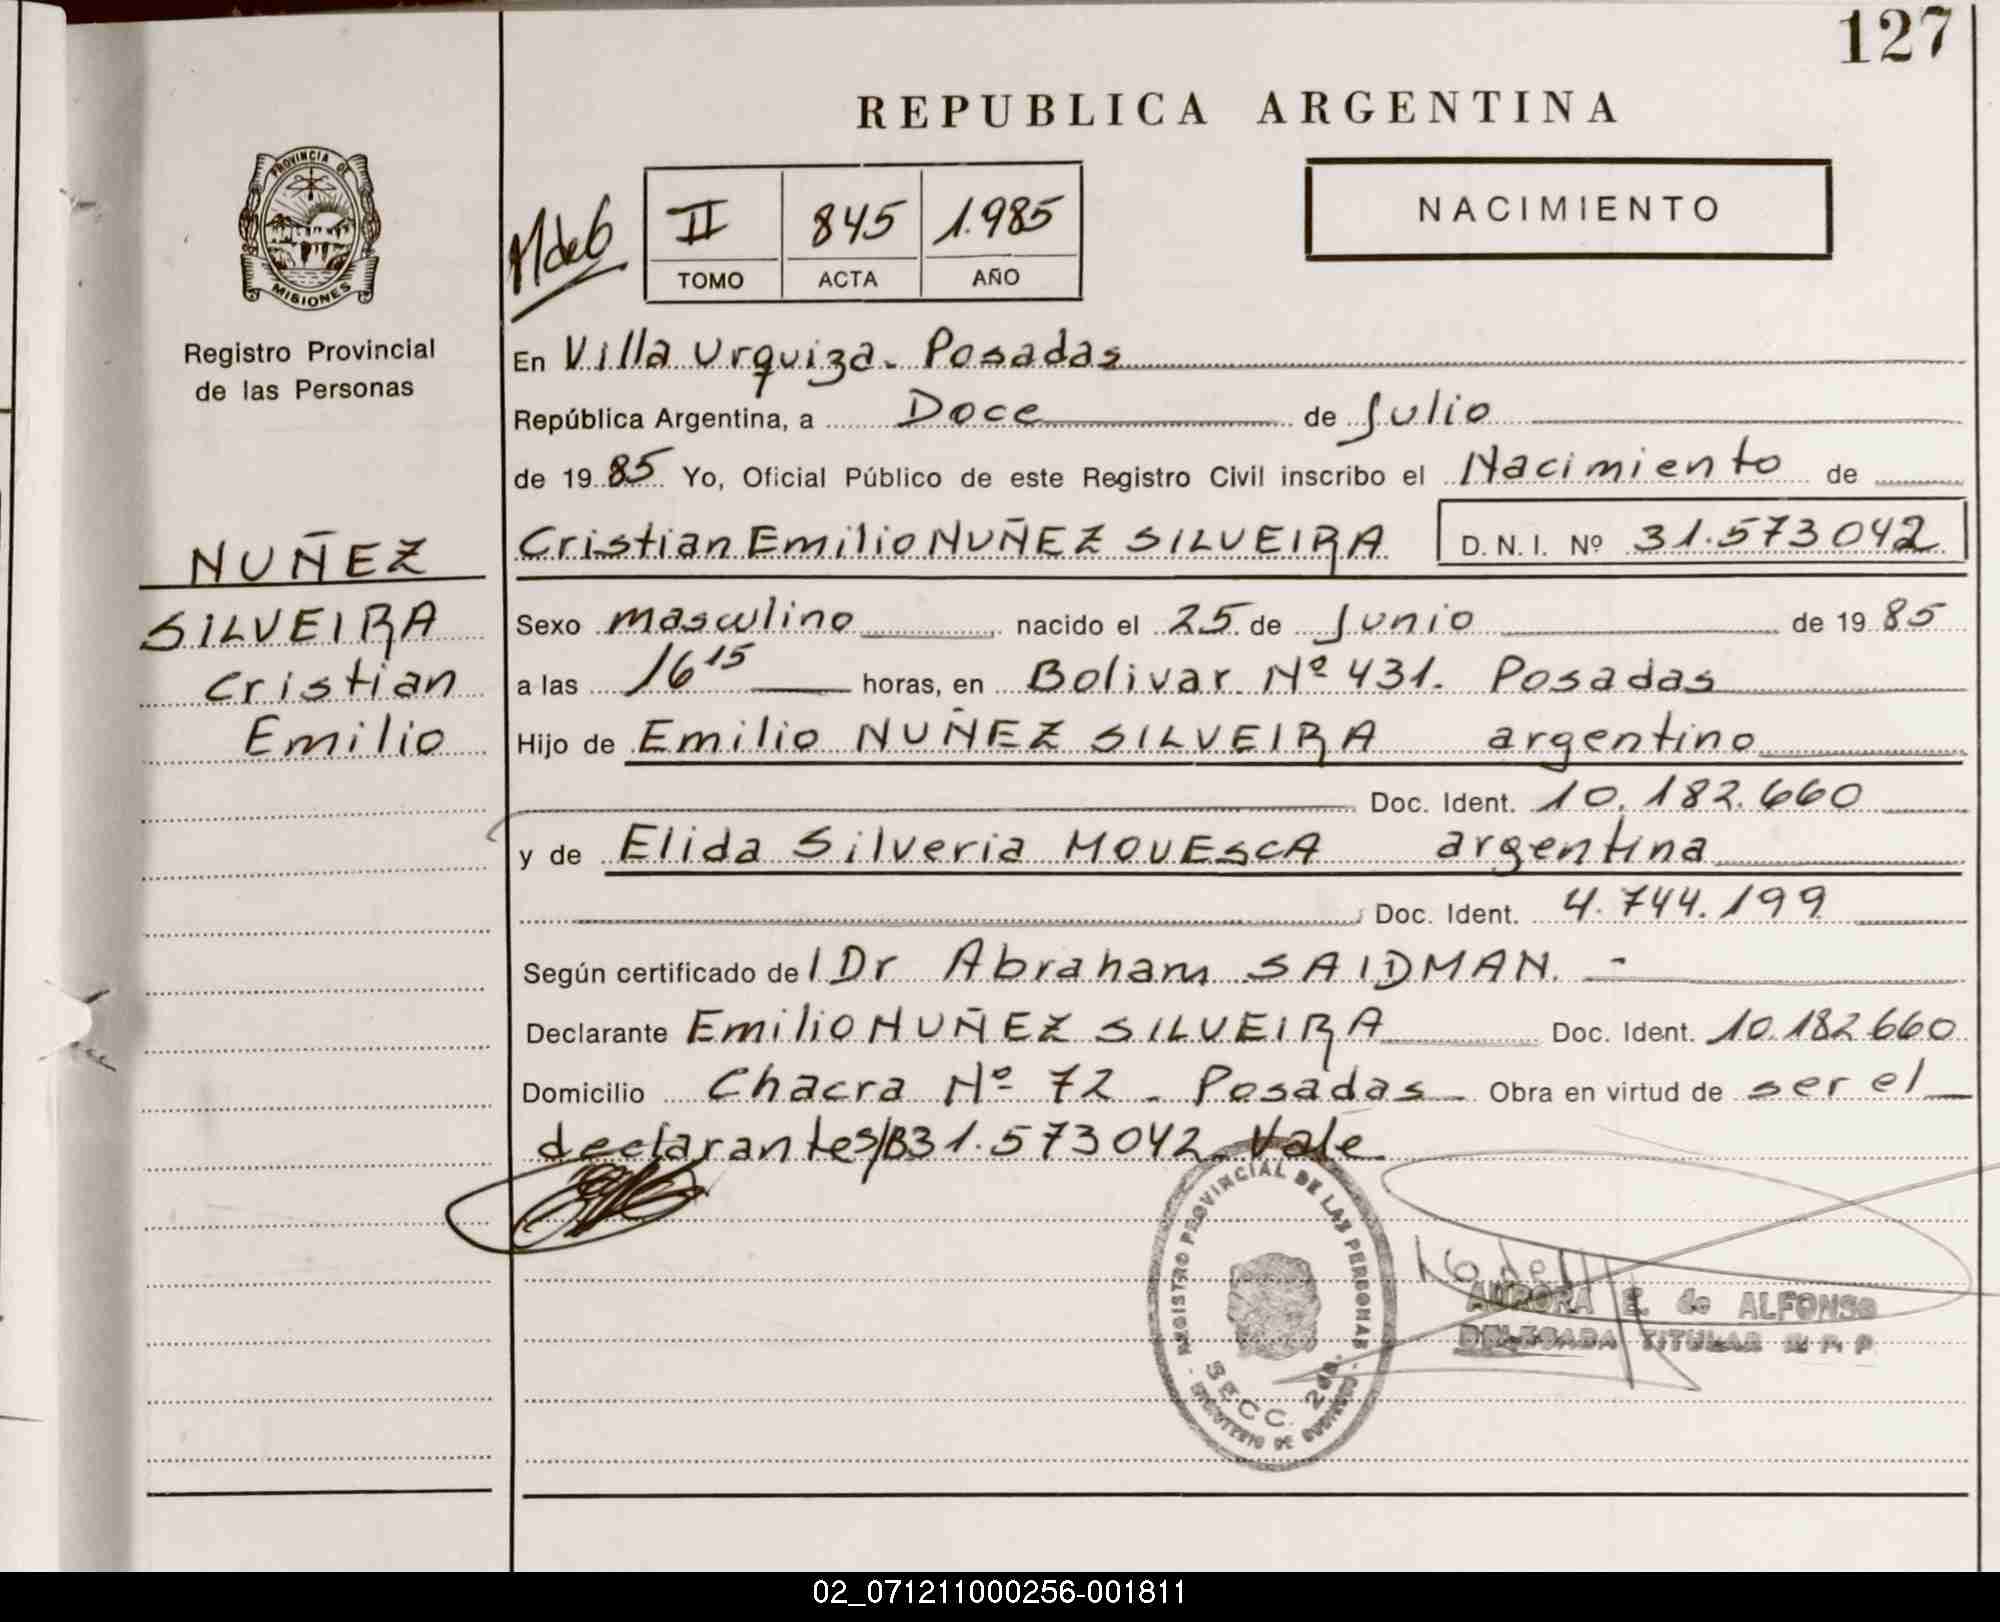 127
REPUBLICA ARGENTINA
PROVINCIA DE
MISIONES
Registro Provincial
de las Personas
II 845 1.985
TOMO ACTA AÑO
NACIMIENTO
En Villa Urquiza. Posadas
República Argentina, a Doce de Julio
de 19 85 Yo, Oficial Público de este Registro Civil inscribo el Nacimiento de
NUÑEZ
SILVEIRA
Cristian
Emilio
Cristian Emilio NUÑEZ SILVEIRA D. N. I. Nº 31.573042
Sexo masculino nacido el 25 de Junio de 19 85
a las 16 15 horas, en Bolivar Nº 431. Posadas
Hijo de Emilio NUÑEZ SILVEIRA argentino
Doc. Ident. 10.182.660
y de Elida Silveria MOVESCA argentina
Doc. Ident. 4.744.199
Según certificado de l Dr Abraham SAIDMAN. -
Declarante Emilio NUÑEZ SILVEIRA Doc. Ident. 10.182660
Domicilio Chacra Nº 72 - Posadas Obra en virtud de ser el
declarante S/B 31.573042 Vale
REGISTRO PROVINCIAL DE LAS PERSONAS
SECC. 2da.
MINISTERIO DE GOBIERNO
AURORA E. de ALFONSO
DELEGADA TITULAR R. P. P.
02_071211000256-001811